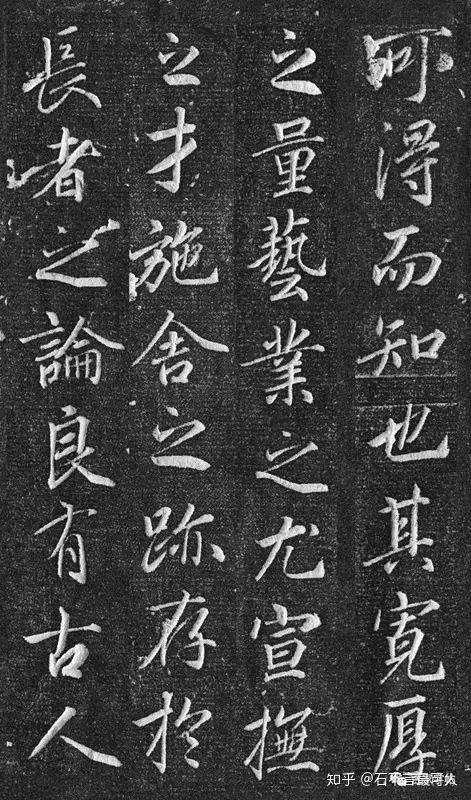 所得而知也其寛厚
之量藝業之尤宣撫
之才施舍之跡存於
長者之論良有古人
知乎